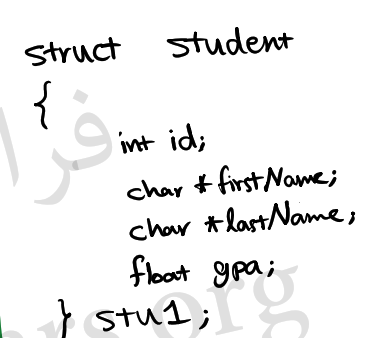 struct student
{
int id;
char *firstName;
char *lastName;
float gpa;
} stu1;
فرا
rs.org